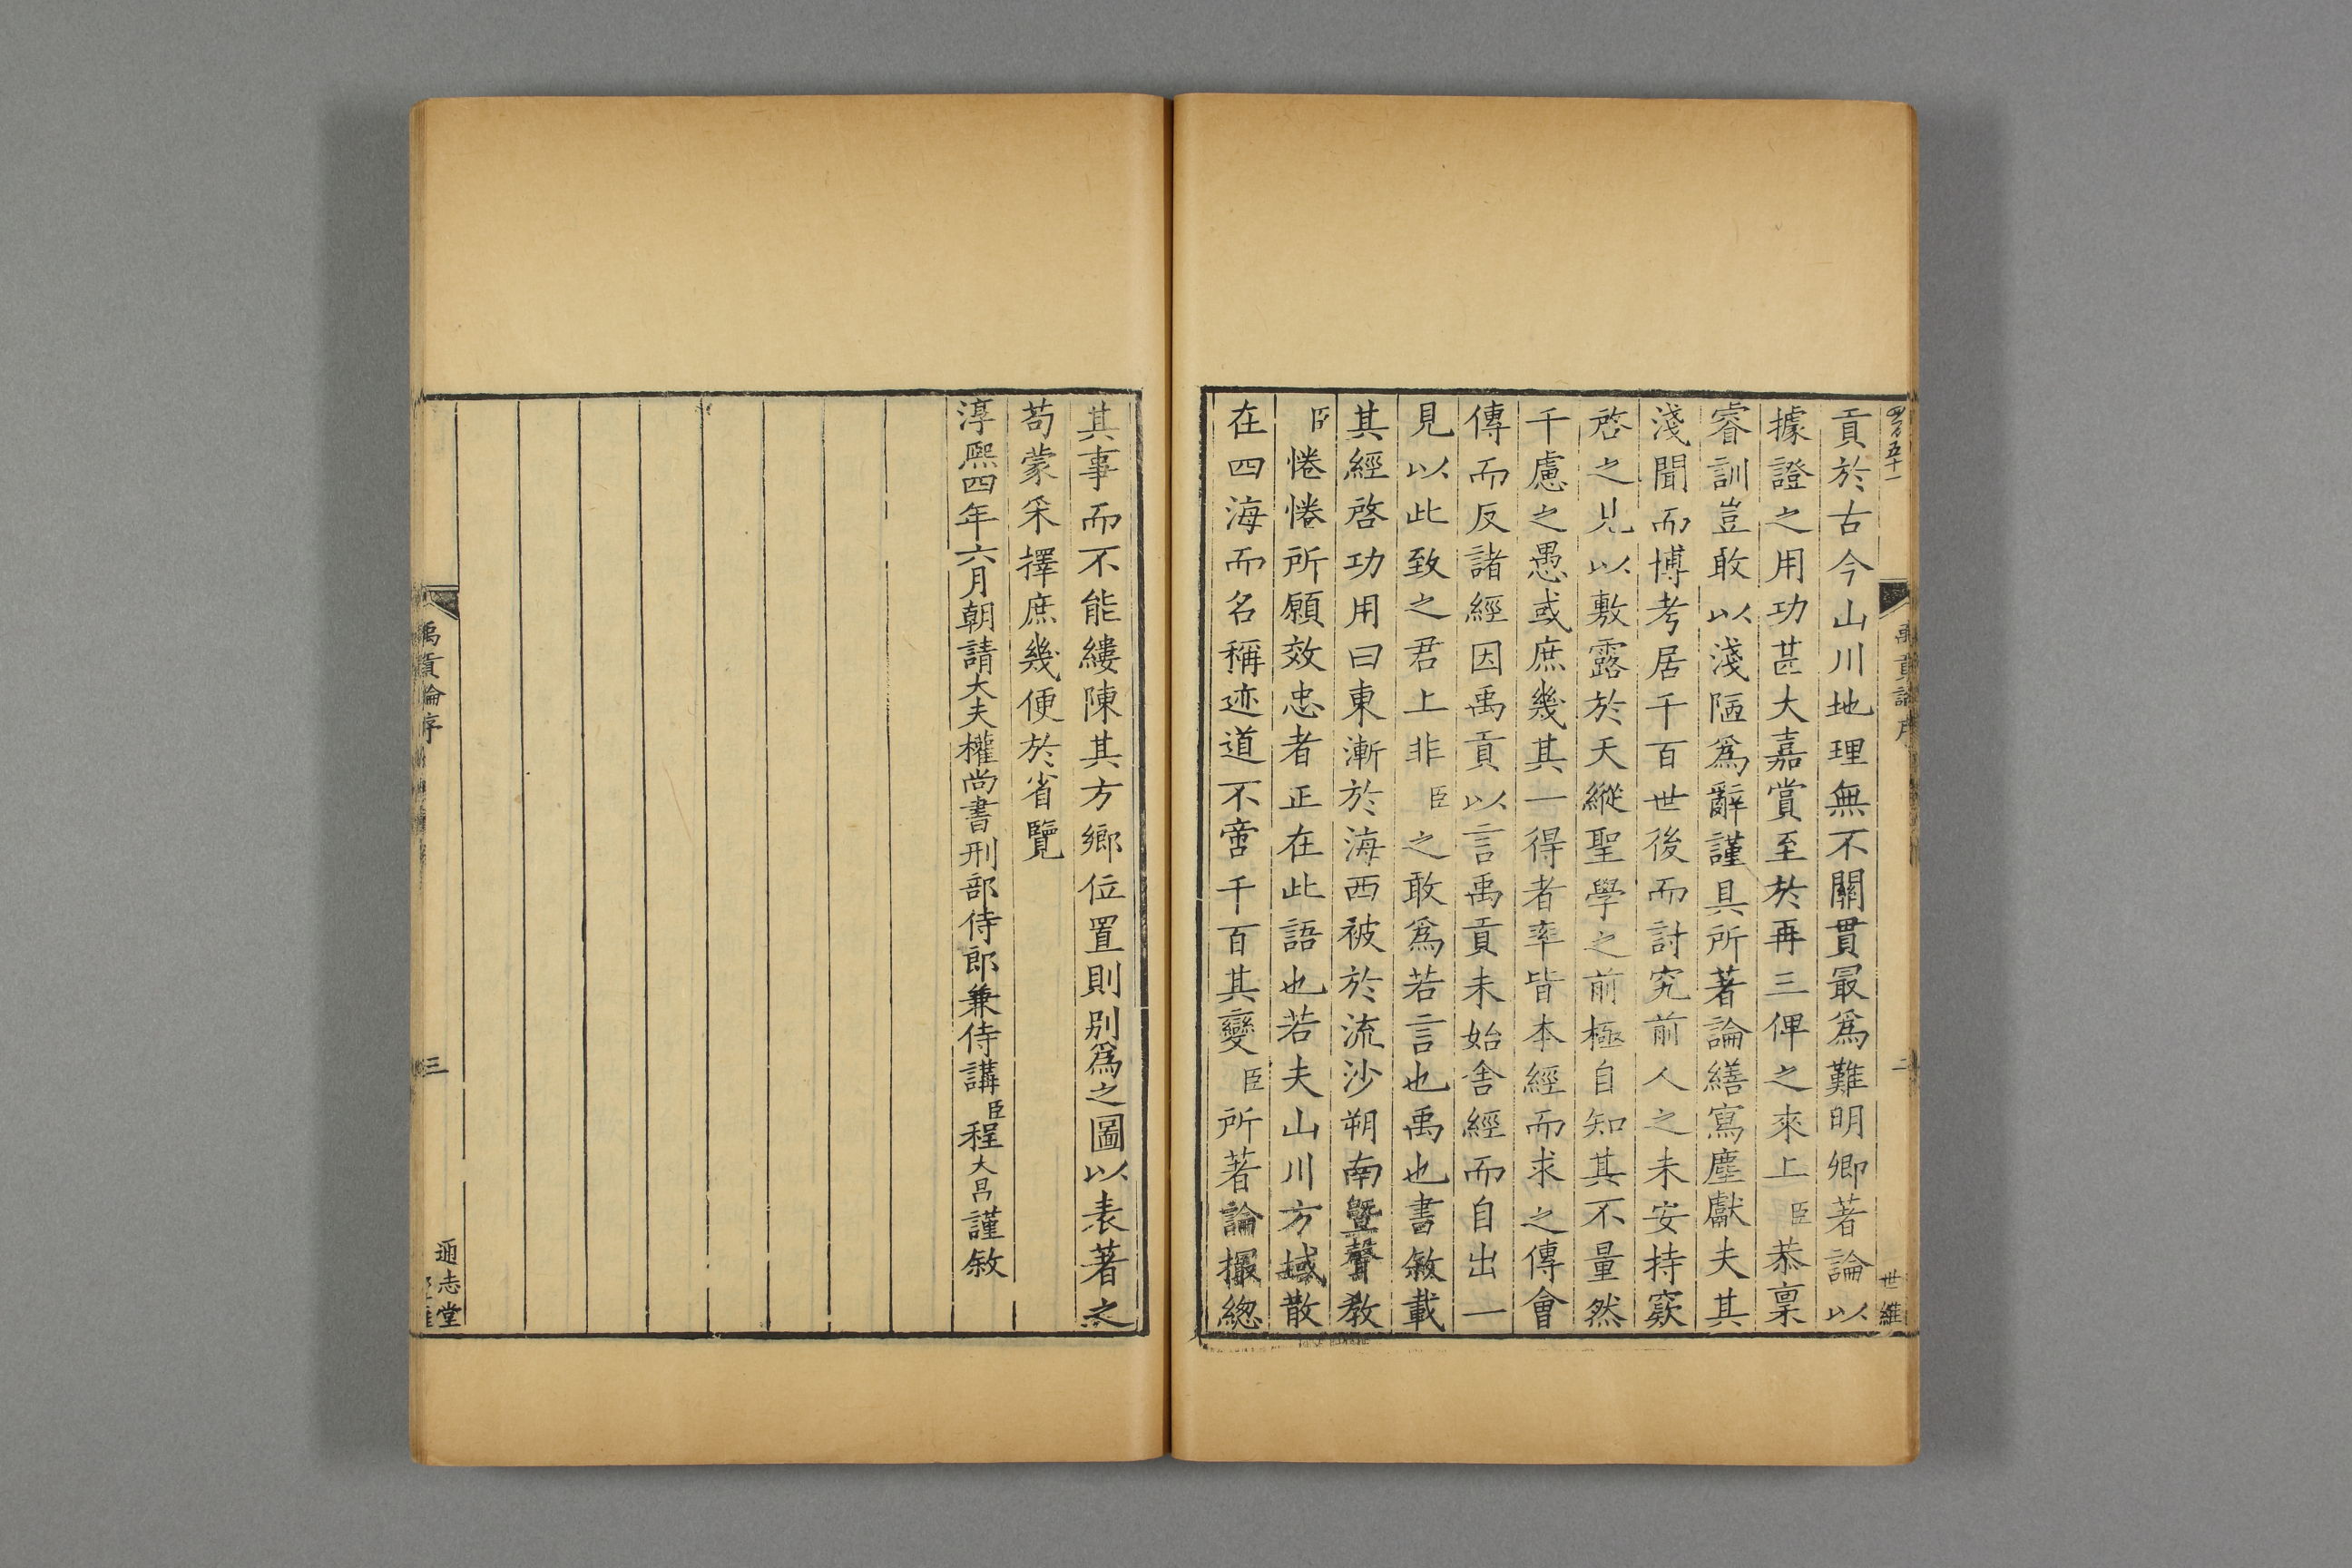 貢於古今山川地理無不關貫最爲難明卿著論以
據證之用功甚大嘉賞至於再三俾之來上臣恭稟
睿訓豈敢以淺陋爲辭謹具所著論繕寫塵獻夫其
淺聞而博考居千百世後而討究前人之未安持窾
啓之見以敷露於天縱聖學之前極自知其不量然
千慮之愚或庶幾其一得者率皆本經而求之傳會
傳而反諸經因禹貢以言禹貢未始舍經而自出一
見以此致之君上非臣之敢爲若言也禹也書敘載
其經啓功用曰東漸於海西被於流沙朔南暨聲敎
臣惓惓所願效忠者正在此語也若夫山川方域散
在四海而名稱迹道不啻千百其變臣所著論撮總
禹貢論序
二
世維
其事而不能縷陳其方鄉位置則別爲之圖以表著之
茍蒙采擇庶幾便於省覽
淳熙四年六月朝請大夫權尚書刑部侍郎兼侍講臣程大昌謹敘
禹貢論序
三
通志堂